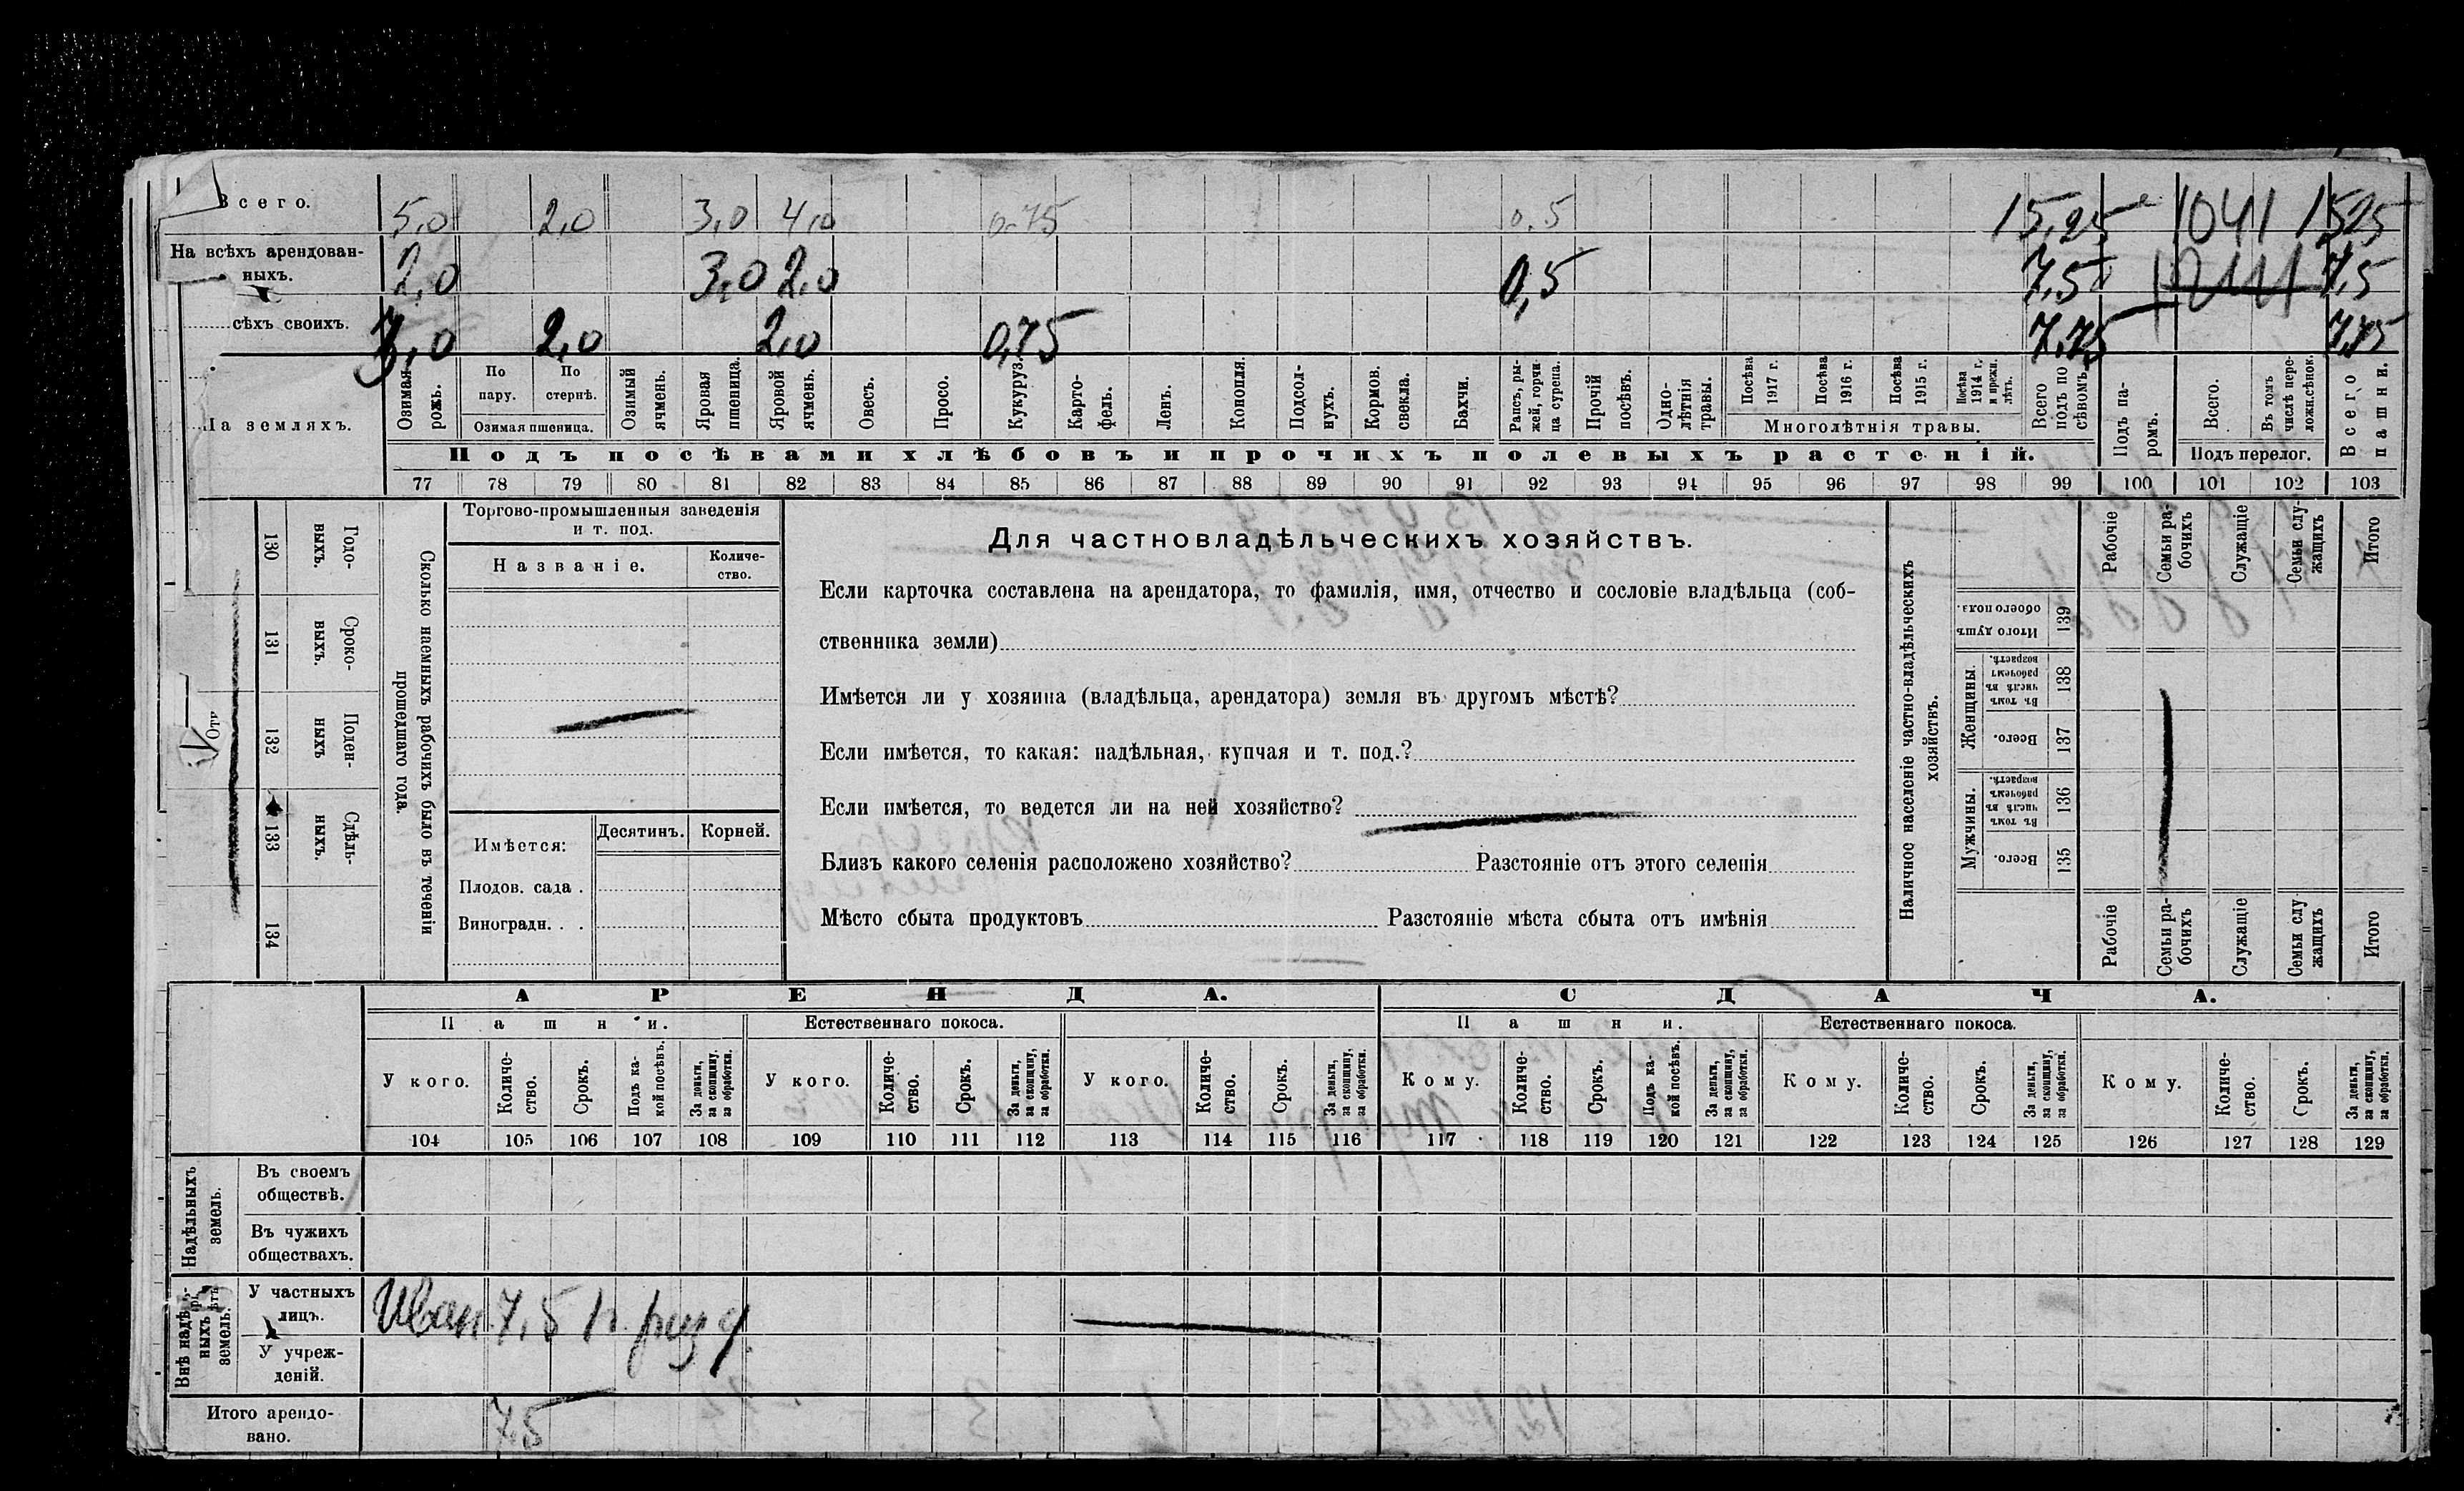 Всего. 5,0 2,0 3,0 4,0 0.75 0,5 15,25 1041 1525
На всѣхъ арендован-
ныхъ. 2,0 3,0 2,0 0,5 7,5 7,5
сѣхъ своихъ. 3,0 2,0 2,0 0,75 7,75 7,75
На земляхъ.
Озимая рожь.
По пару.
По стернѣ.
Озимая пшеница.
Озимый ячмень.
Яровая пшеница.
Яровой ячмень.
Овесъ.
Просо.
Кукуруз.
Карто-
фель.
Ленъ.
Конопля.
Подсол-
нухъ.
Кормов. свекла.
Бахчи.
Рапсъ, ры-
жей, горчи-
ца сурепа.
Прочій посѣвъ.
Одно-
лѣтнія травы.
Посѣва 1917 г.
Посѣва 1916 г.
Посѣва 1915 г.
Посѣва 1914 г. и прежн. лѣтъ.
Многолѣтнія травы.
Всего подъ по сѣвомъ.
Подъ па-
ромъ.
Всего.
Въ томъ числѣ пере-
ложн.сѣнок.
Подъ перелог.
Всего пашни.
Подъ посѣвами хлѣбовъ и прочихъ полевыхъ растеній.
77 78 79 80 81 82 83 84 85 86 87 88 89 90 91 92 93 94 95 96 97 98 99 100 101 102 103
Годо-
выхъ.
130
Сроко-
выхъ.
131
Поден-
ныхъ
132
Сдѣль-
ныхъ.
133
134
Отр
Сколько наемныхъ рабочихъ было въ теченіи
прошедшаго года.
Торгово-промышленныя заведенія
и т. под.
Названіе.
Количе-
ство.
Имѣется:
Десятинъ.
Корней.
Плодов. сада .
Виноградн. . .
Для частновладѣльческихъ хозяйствъ.
Если карточка составлена на арендатора, то фамилія, имя, отчество и сословіе владѣльца (соб-
ственника земли)
Имѣется ли у хозяина (владѣльца, арендатора) земля въ другомъ мѣстѣ?
Если имѣется, то какая: надѣльная, купчая и т. под.?
Если имѣется, то ведется ли на ней хозяйство?
Близъ какого селенія расположено хозяйство? Разстояніе отъ этого селенія
Мѣсто сбыта продуктовъ Разстояніе мѣста сбыта отъ имѣнія
Наличное населеніе частно-владѣльческихъ
хозяйствъ.
Рабочіе
Семьи ра-
бочихъ
Служащіе
Семьи слу-
жащихъ
Итого
Итого душъ обоего пола.
139
Женщины.
Въ томъ числѣ въ рабочемъ возрастѣ.
138
Всего.
137
Мужчины.
Въ томъ числѣ въ рабочемъ возрастѣ.
136
Всего.
135
Рабочіе
Семьи ра-
бочихъ
Служащіе
Семьи слу
жащихъ
Итого
АРЕНДА. СДАЧА.
Пашни. Естественнаго покоса. Пашни. Естественнаго покоса.
У кого.
Количе-
ство.
Срокъ.
Подъ ка-
кой посѣвъ.
За деньги, за скопщину, за обработки.
У кого.
Количе-
ство.
Срокъ.
За деньги, за скопщину, за обработки.
У кого.
Количе-
ство.
Срокъ.
За деньги, за скопщину, за обработки.
Кому.
Количе-
ство.
Срокъ.
Подъ ка-
кой посѣвъ.
За деньги, за скопщину, за обработки.
Кому.
Количе-
ство.
Срокъ.
За деньги, за скопщину, за обработки.
Кому.
Количе-
ство.
Срокъ.
За деньги, за скопщину, за обработки.
104 105 106 107 108 109 110 111 112 113 114 115 116 117 118 119 120 121 122 123 124 125 126 127 128 129
Надѣльныхъ
земель.
Въ своемъ
обществѣ.
Въ чужихъ
обществахъ.
Внѣ надѣль-
ныхъ
земель.
У частныхъ
лицъ.
Иван 7,5
У учреж-
деній.
Итого арендо-
вано. 7,5